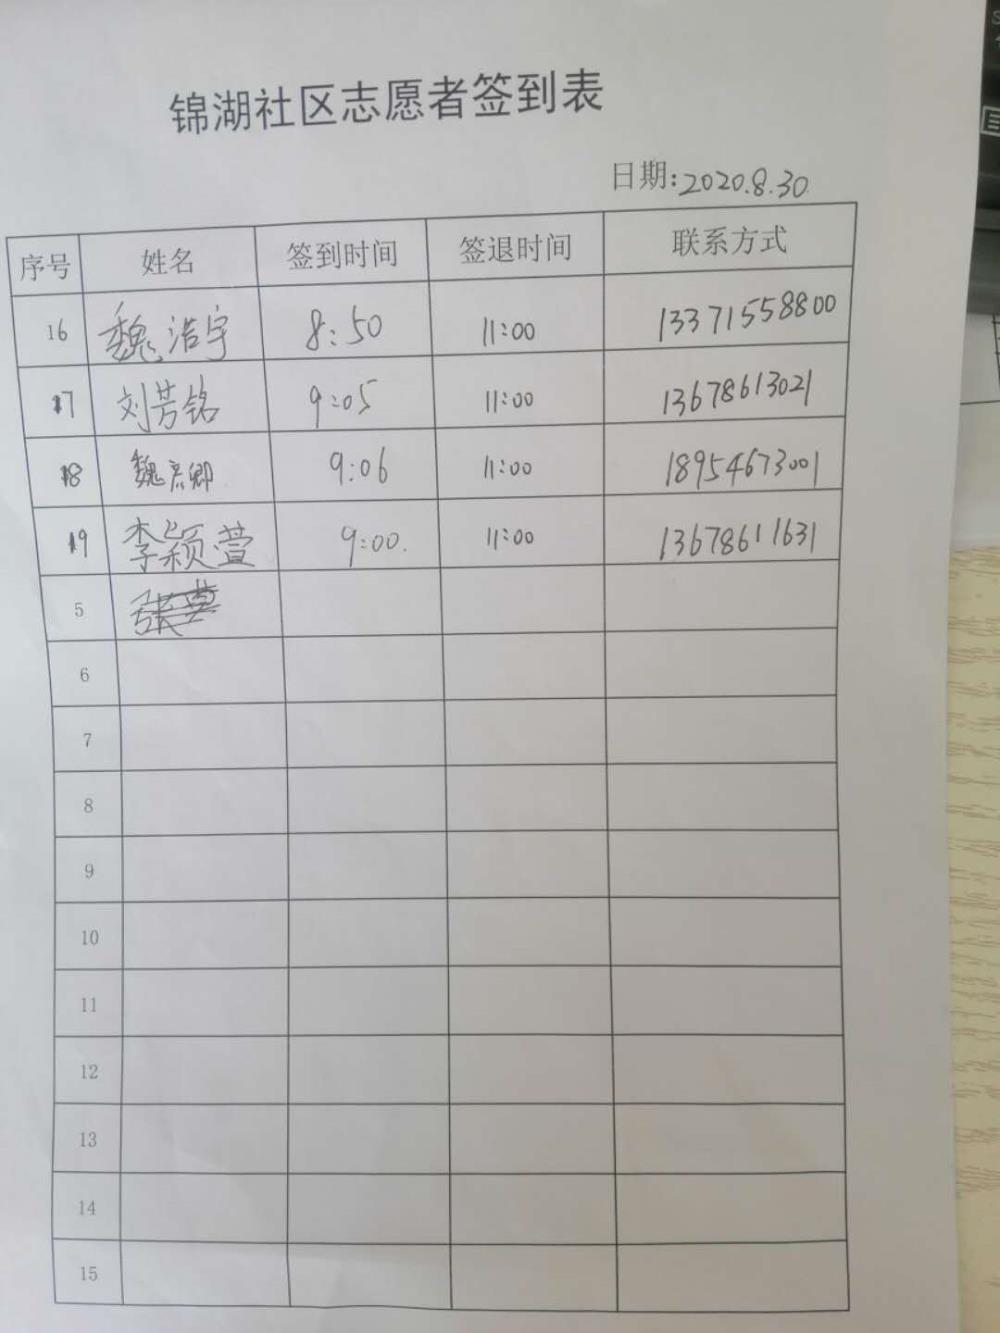 锦湖社区志愿者签到表
日期:2020.8.30
序号 姓名 签到时间 签退时间 联系方式
16 魏浩宇 8:50 11:00 13371558800
17 刘芳铭 9:05 11:00 13678613021
18 魏彦卿 9:06 11:00 18954673001
19 李颖萱 9:00. 11:00 13678611631
5 张
6
7
8
9
10
11
12
13
14
15